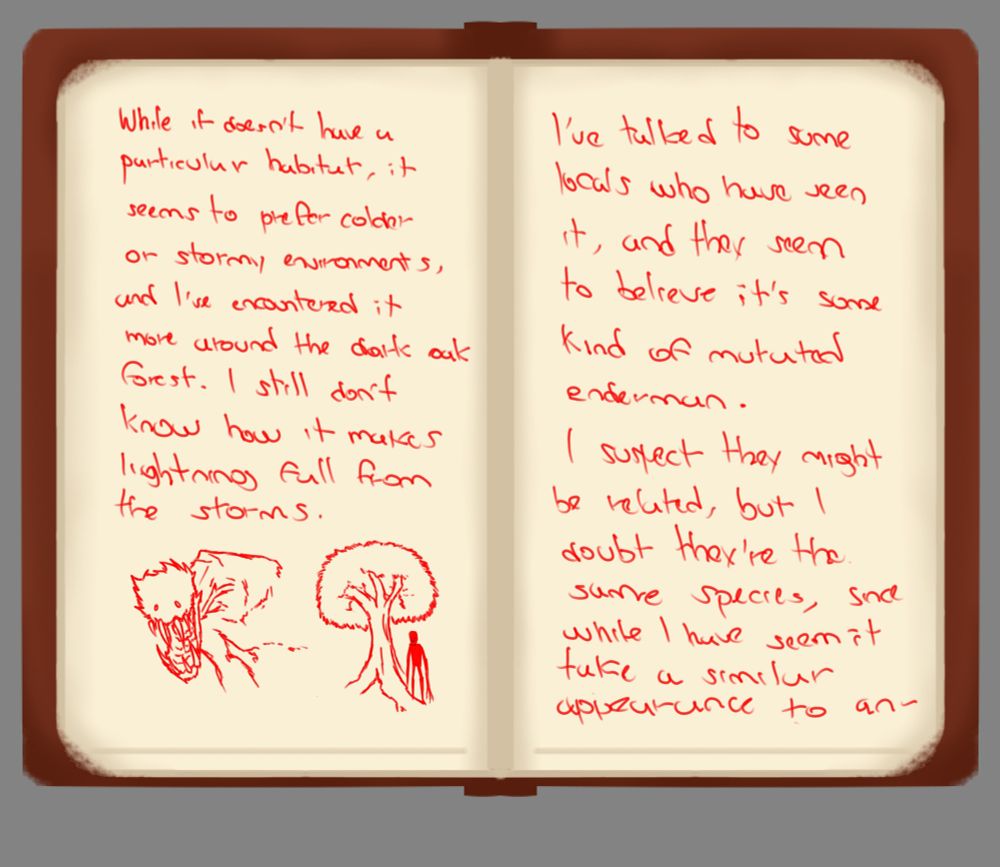 While it doesn't have a
particular habitat, it
seems to prefer colder
or stormy environments,
and I've encountered it
more around the dark oak
forest. I still don't
know how it makes
lightning fall from
the storms.
I've talked to some
locals who have seen
it, and they seem
to believe it's some
kind of mutated
enderman.
I suspect they might
be related, but I
doubt they're the
same species, since
while I have seem it
take a similar
appearance to an-